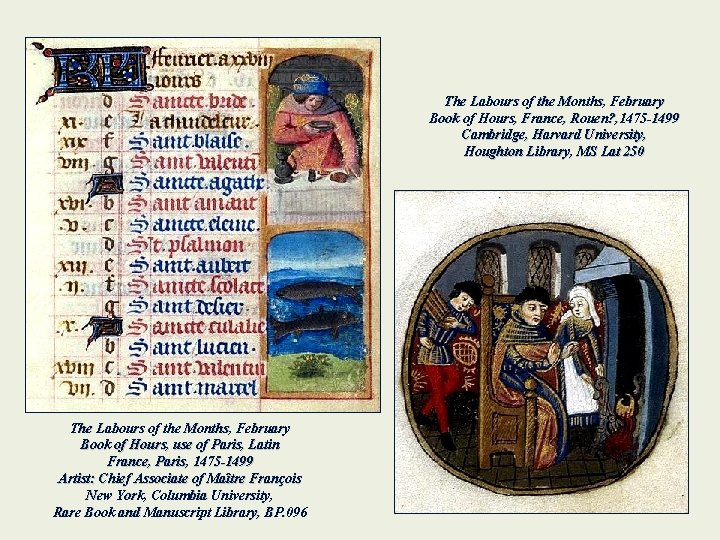 KL ffeurier.a.xxviij
iours
d Saincte.bride
.xi. e La chandeleur
xix f Saint.blaise
viij g Saint.valenti
A Saincte.agathe
.xvi. b Saint amant
.v. c Saincte.eleine
d St. psalmon
.xiij. e Saint.aubert
.ij. f Saincte
g Saint desier
.x. A Saincte eulalie
b Saint.lucien
xviij c Saint.valentin
.vij. d Saint.marcel
The Labours of the Months, February
Book of Hours, use of Paris, Latin
France, Paris, 1475-1499
Artist: Chief Associate of Maître François
New York, Columbia University,
Rare Book and Manuscript Library, BP.096
The Labours of the Months, February
Book of Hours, France, Rouen?, 1475-1499
Cambridge, Harvard University,
Houghton Library, MS Lat 250